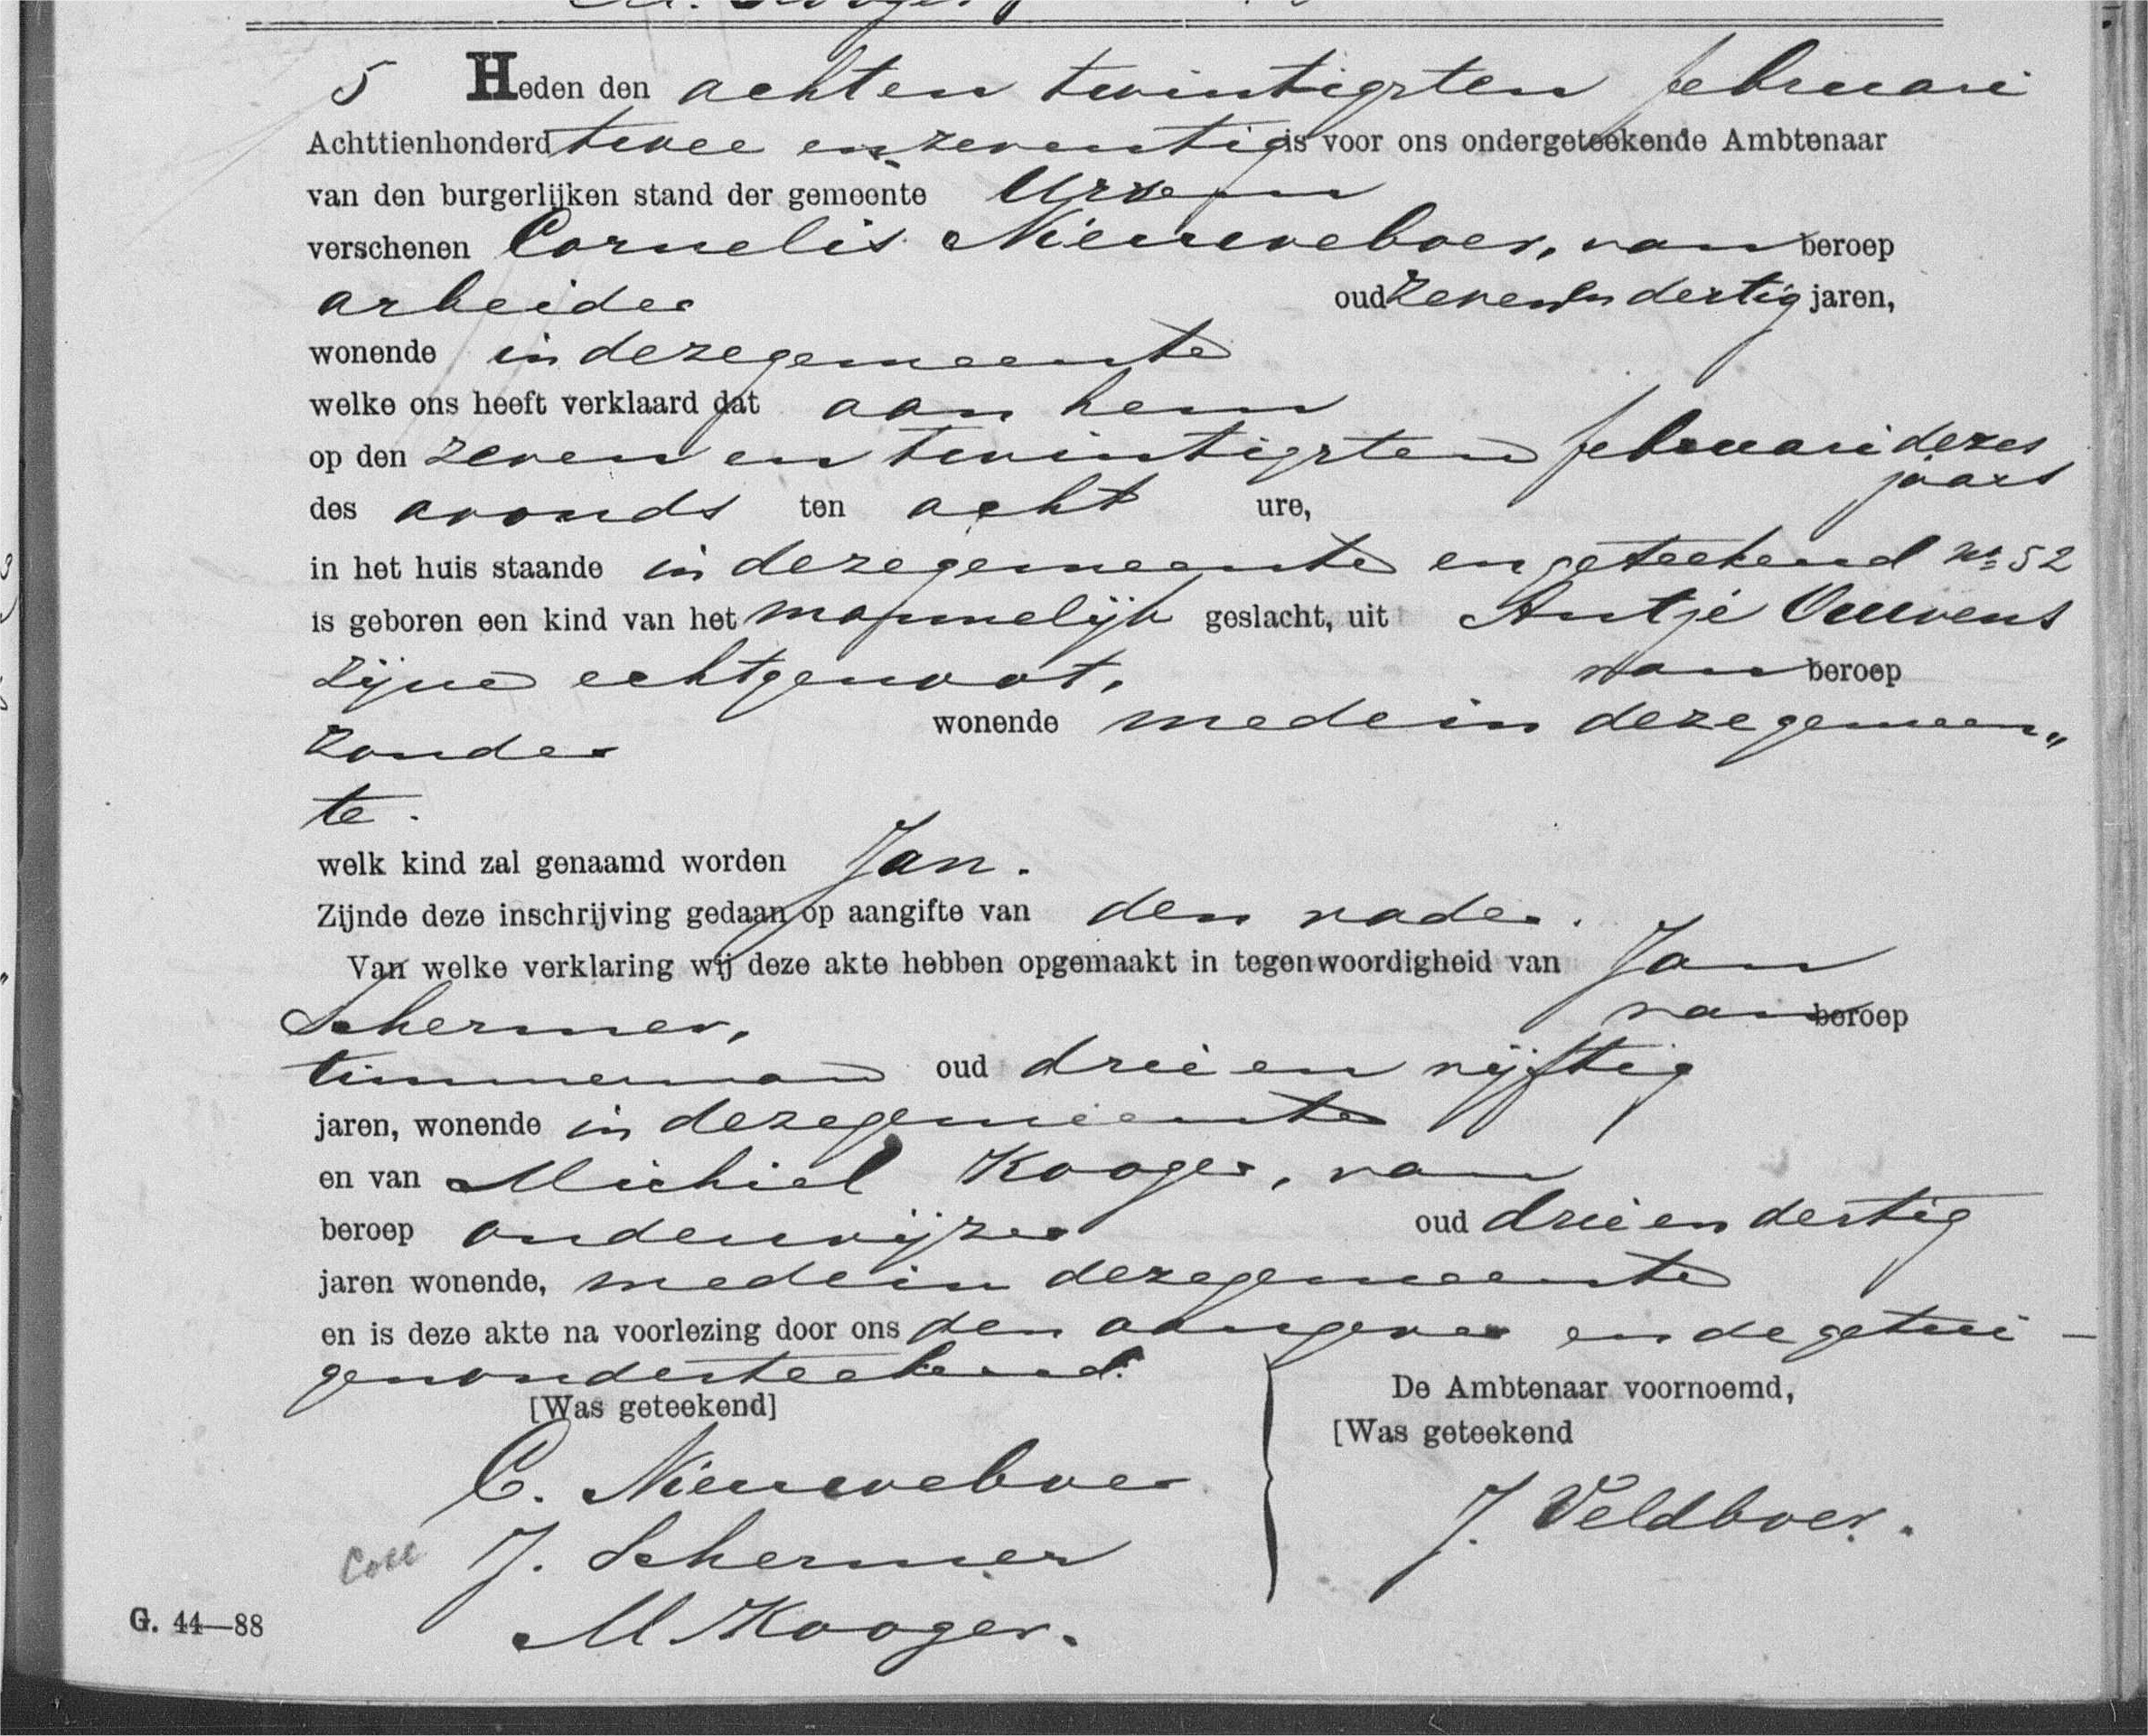 5 Heden den achten twintigsten februari
Achttienhonderd twee en zeventig is voor ons ondergeteekende Ambtenaar
van den burgerlijken stand der gemeente Ursem
verschenen Cornelis Nieuweboer, van beroep
arbeider oud zeven en dertig jaren,
wonende in deze gemeente
welke ons heeft verklaard dat aan hem
op den zeven en twintigsten februari dezes
jaars
des avonds ten acht ure,
in het huis staande in deze gemeente en geteekend No 52
is geboren een kind van het mannelijk geslacht, uit Antje Ouwens
zijne echtgenoot, van beroep
zonder wonende mede in deze gemeen„
te.
welk kind zal genaamd worden Jan.
Zijnde deze inschrijving gedaan op aangifte van den vader.
Van welke verklaring wij deze akte hebben opgemaakt in tegenwoordigheid van Jan
Schermer, van beroep
timmerman oud drie en vijftig
jaren, wonende in deze gemeente
en van Michiel Kooger, van
beroep onderwijzer oud drie en dertig
jaren wonende, mede in deze gemeente
en is deze akte na voorlezing door ons den aangever en de getui-
gen onderteekend.
[Was geteekend]
De Ambtenaar voornoemd,
[Was geteekend
C. Nieuweboer
J. Veldboer.
Coll J. Schermer
M Kooger.
G. 44—88